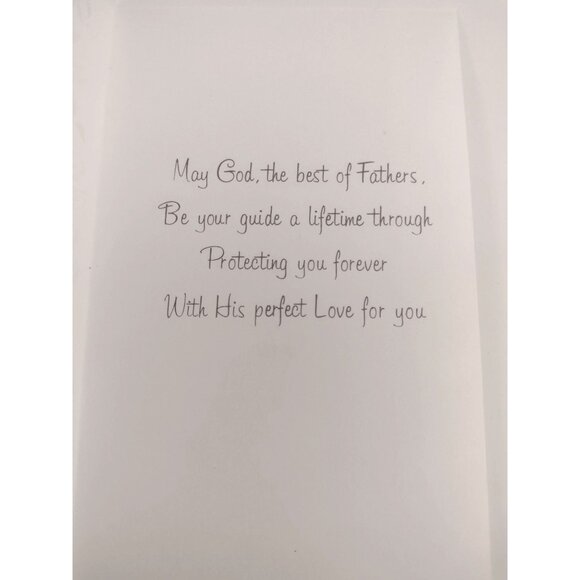 May God, the best of Fathers,
Be your guide a lifetime through
Protecting you forever
With His perfect Love for you